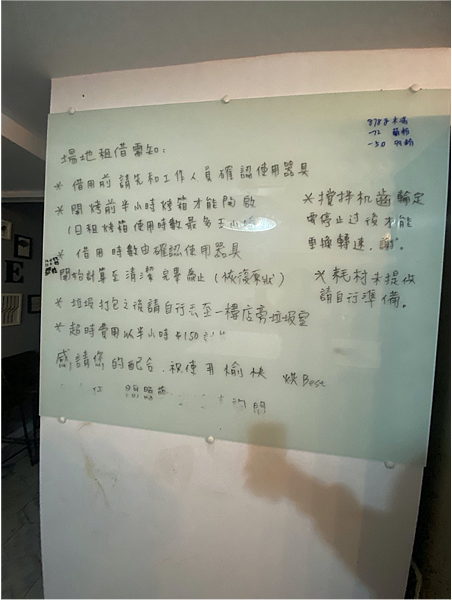 場地租借需知:
* 借用前請先和工作人員確認使用器具
* 開烤前半小時烤箱才能開啟
(日租烤箱使用時數最多五小時)
* 借用時數由確認使用器具
開始計算至清潔完畢為止(恢復原狀)
* 垃圾打包之後請自行丟至一樓店旁垃圾室
* 超時費用以半小時$150
感謝您的配合.祝使用愉快 烘Best
* 攪拌机齒輪定
需停止过後才能
更換轉速.謝。
* 耗材未提收
請自行準備。
8788
-72
-30
E